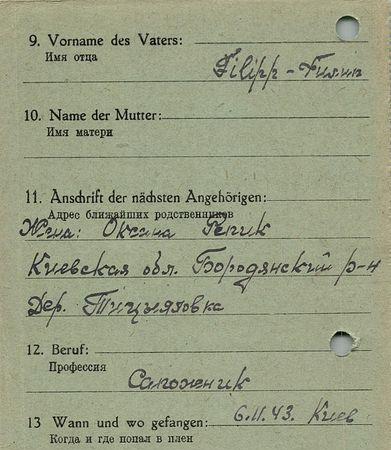 9. Vorname des Vaters:
Имя отца
Filipp – Филип
10. Name der Mutter:
Имя матери
11. Anschrift der nächsten Angehörigen:
Адрес ближайших родственников
Жена: Оксина Репик
Киевская обл. Бородянский р-н
Дер.
12. Beruf:
Профессия
Сапожник
13 Wann und wo gefangen: 6.11.43. Киев
Когда и где попал в плен